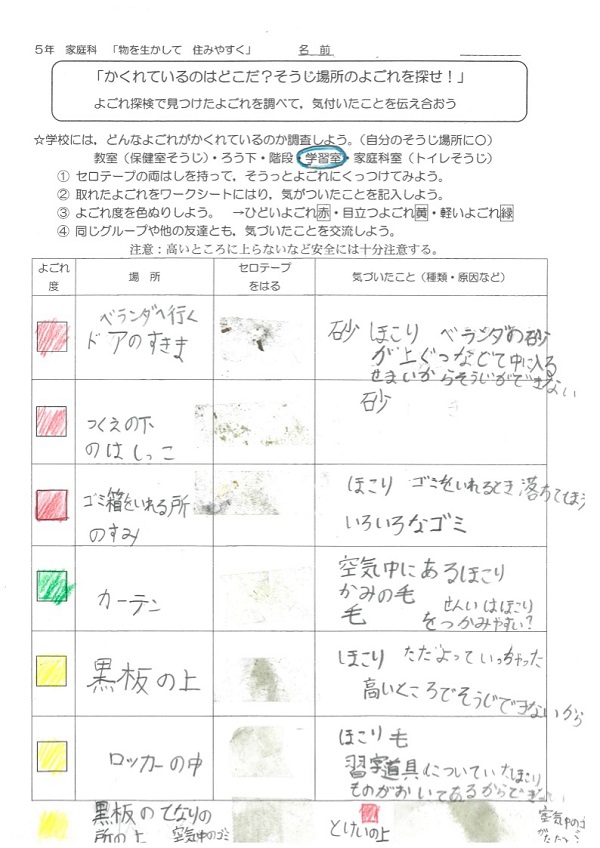 5年 家庭科 「物を生かして 住みやすく」 名 前
「かくれているのはどこだ？そうじ場所のよごれを探せ！」
よごれ探検で見つけたよごれを調べて，気付いたことを伝え合おう
☆学校には，どんなよごれがかくれているのか調査しよう。（自分のそうじ場所に○）
教室（保健室そうじ）・ろう下・階段・学習室・家庭科室（トイレそうじ）
① セロテープの両はしを持って，そうっとよごれにくっつけてみよう。
② 取れたよごれをワークシートにはり，気がついたことを記入しよう。
③ よごれ度を色ぬりしよう。 →ひどいよごれ赤・目立つよごれ黄・軽いよごれ緑
④ 同じグループや他の友達とも，気づいたことを交流しよう。
注意：高いところに上らないなど安全には十分注意する。
よごれ度 場 所 セロテープをはる 気づいたこと（種類・原因など）
ベランダへ行く
ドアのすきま
砂 ほこり ベランダの砂
が上ぐつなどで中に入る
せまいからそうじができない
つくえの下
のはしっこ
砂
ゴミ箱をいれる所
のすみ
ほこり ゴミをいれるとき落ちてしまう
いろいろなゴミ
カーテン
空気中にあるほこり
かみの毛
毛 せんいはほこり
をつかみやすい？
黒板の上
ほこり ただよっていっちゃった
高いところでそうじできないから
ロッカーの中
ほこり 毛
習字道具についていたほこり
ものがおいてあるから
黒板のとなりの
所の上 空気中のゴミ
とけいの上
空気中のゴミ